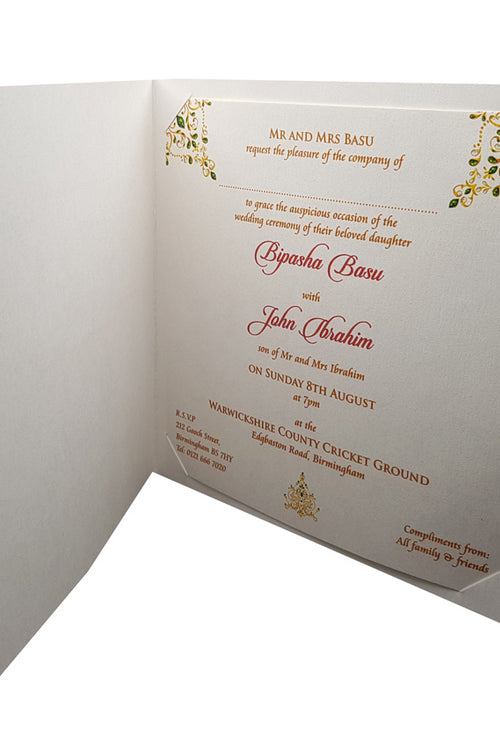 Mr and Mrs Basu
request the pleasure of the company of
to grace the auspicious occasion of the
wedding ceremony of their beloved daughter
Bipasha Basu
with
John Ibrahim
son of Mr and Mrs Ibrahim
on Sunday 8th August
at 7pm
at the
Warwickshire County Cricket Ground
Edgbaston Road, Birmingham
R.S.V.P
212 Gooch Street,
Birmingham B5 7HY
Tel: 0121 666 7020
Compliments from:
All family & friends